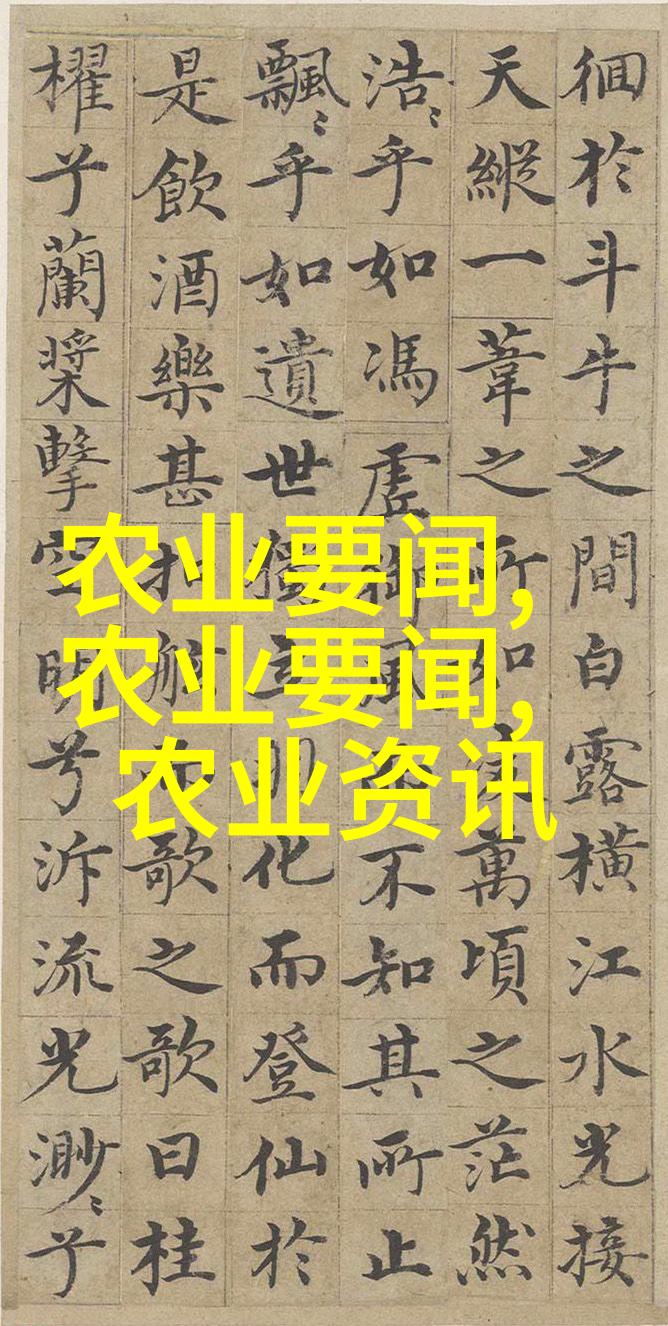 徊於斗牛之間白露橫江水光接
天縱一葦之所如凌萬頃之茫然
浩〻乎如馮虛御風而不知其所止
飄〻乎如遺世獨立羽化而登仙於
是飲酒樂甚扣舷而歌之歌曰桂
櫂兮蘭槳擊空明兮泝流光渺〻兮
农业要闻,
农业要闻,
农业资讯